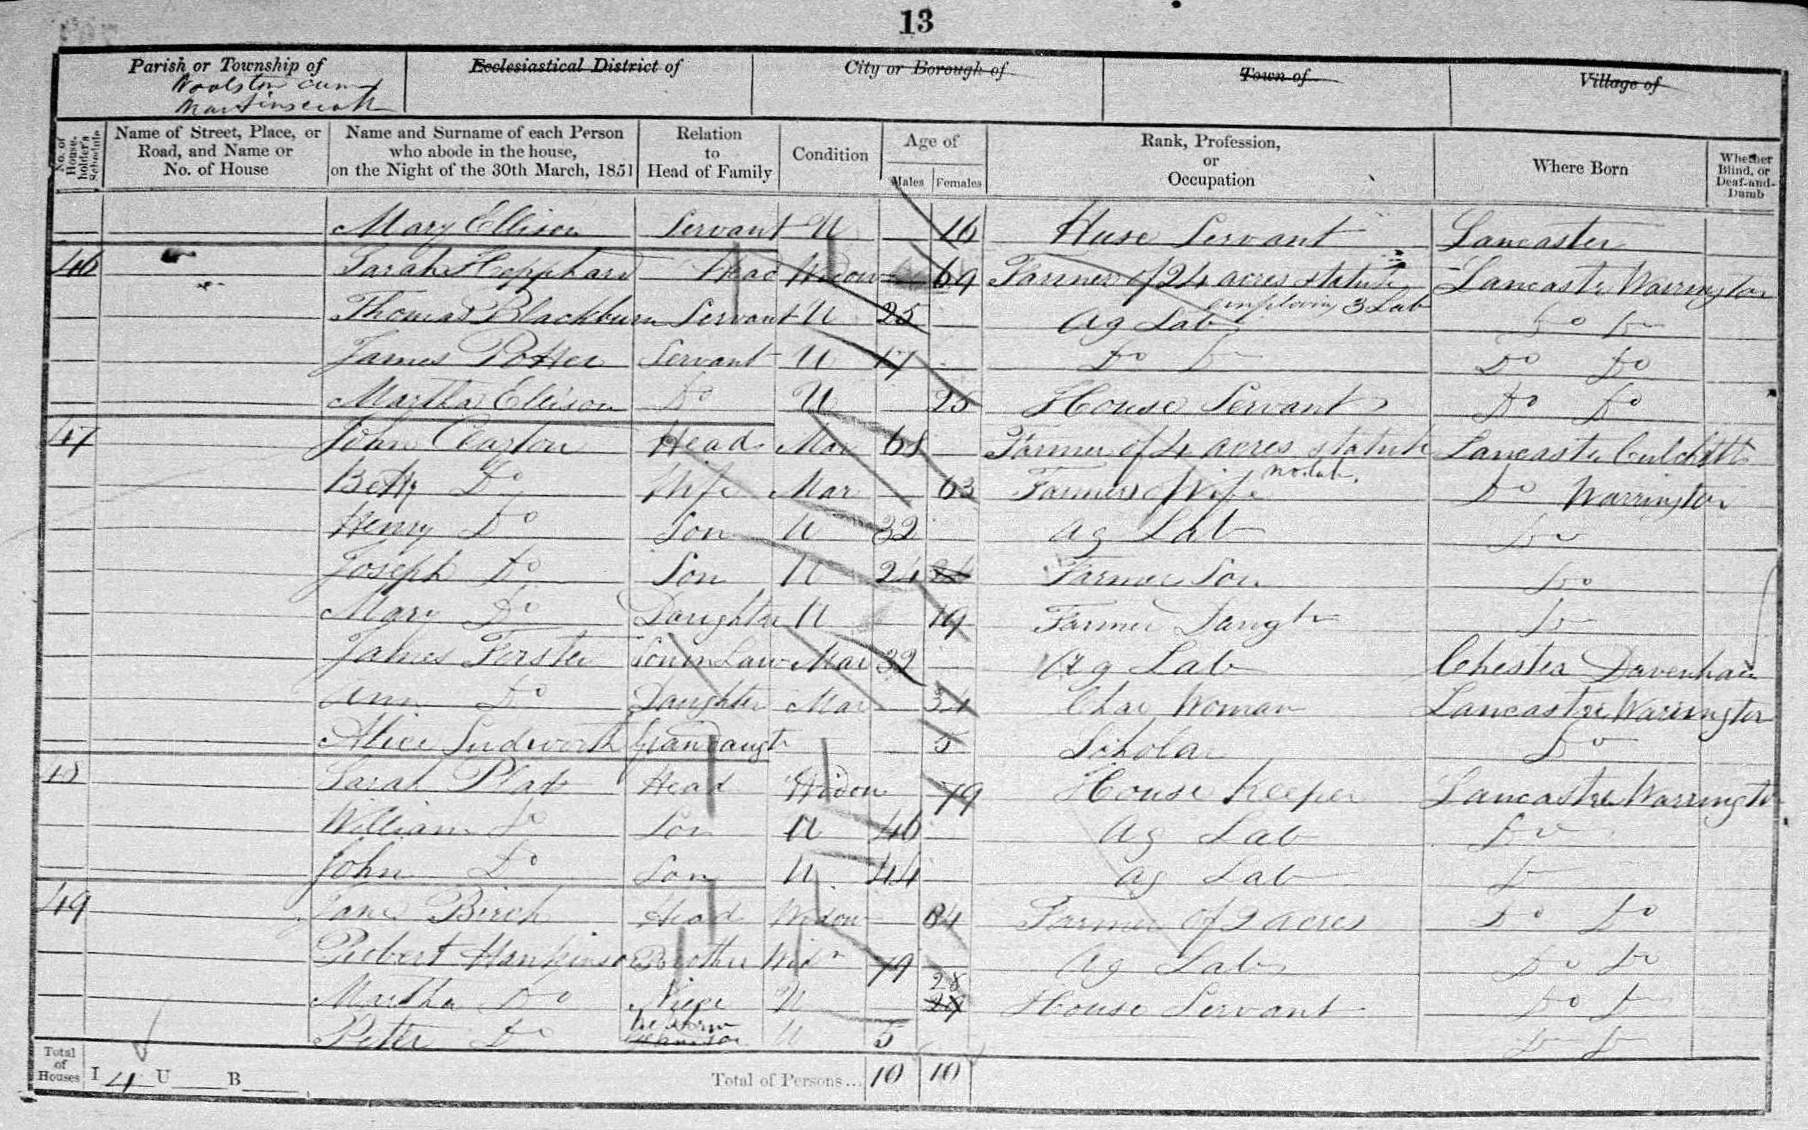 13
Parish or Township of Ecclesiastical District of City or Borough of Town of Village of
Woolston cum
Martinscroft
No. of House-holder's Schedule Name of Street, Place, or Road, and Name or No. of House Name and Surname of each Person who abode in the house, on the Night of the 30th March, 1851 Relation to Head of Family Condition Age of Males Females Rank, Profession, or Occupation Where Born Whether Blind, or Deaf-and-Dumb
Mary Ellison Servant U 16 House Servant Lancaster
46 Sarah Hepphard Head Widow 69 Farmer of 24 acres statute Lancaster Warrington
employing 3 Lab
Thomas Blackburn Servant U 25 Ag Lab Do Do
James Potter Servant U 17 Do Do Do Do
Martha Ellison Do U 25 House Servant Do Do
47 John Claxton Head Mar 61 Farmer of 4 acres statute Lancaster Culcheth
no lab.
Betty Do Wife Mar 63 Farmers Wife Do Warrington
Henry Do Son U 32 Ag Lab Do
Joseph Do Son U 24 Farmer Son Do
Mary Do Daughter U 19 Farmer Daugtr Do
James Forster Son in Law Mar 32 Ag Lab Chester Davenham
Ann Do Daughter Mar 34 Char Woman Lancaster Warrington
Alice Ludworth Grandaugtr 5 Scholar Do
48 Sarah Platt Head Widow 79 House Keeper Lancaster Warrington
William Do Son U 46 Ag Lab Do
John Do Son U 44 Ag Lab Do
49 Jane Birch Head Widow 84 Farmer of 2 acres Do Do
Robert Hankinson Brother Widr 79 Ag Lab Do Do
28
Martha Do Niece U 29 House Servant Do Do
Peter Do U 5 Do Do
Total of Houses I 4 U B Total of Persons... 10 10